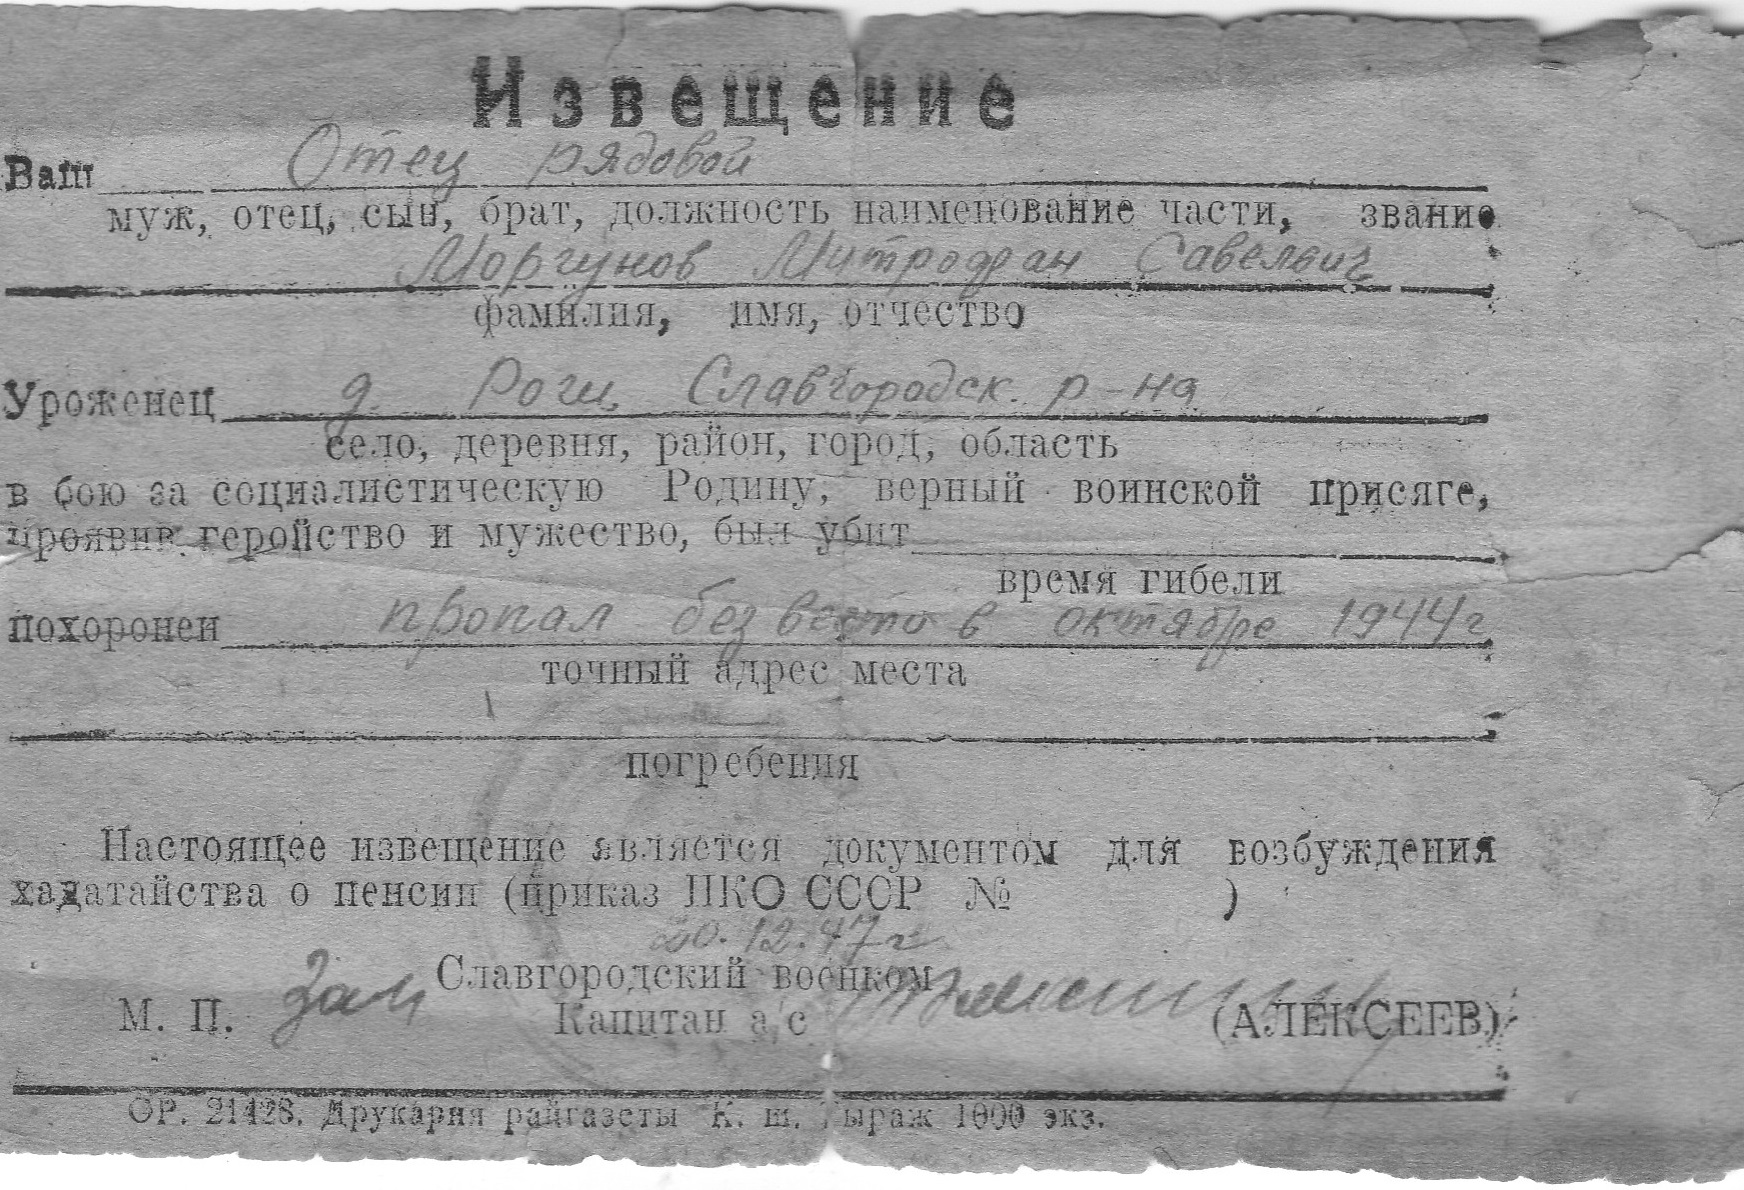 Извещение
Ваш Отец рядовой
муж, отец, сын, брат, должность наименование части, звание
Моргунов Митрофан Савельич
фамилия, имя, отчество
Уроженец д. Роги, Славгородск. р-на
село, деревня, район, город, область
в бою за социалистическую Родину, верный воинской присяге,
проявив геройство и мужество, был убит
время гибели
похоронен пропал без вести в октябре 1944 г
точный адрес места
погребения
Настоящее извещение является документом для возбуждения
хадатайства о пенсии (приказ НКО СССР № )
20.12.47 г
Славгородский военком
М. П. Зам Капитан а/с (АЛЕКСЕЕВ)
ОР. 21428. Друкарня райгазеты К. ш. Тыраж 1000 экз.